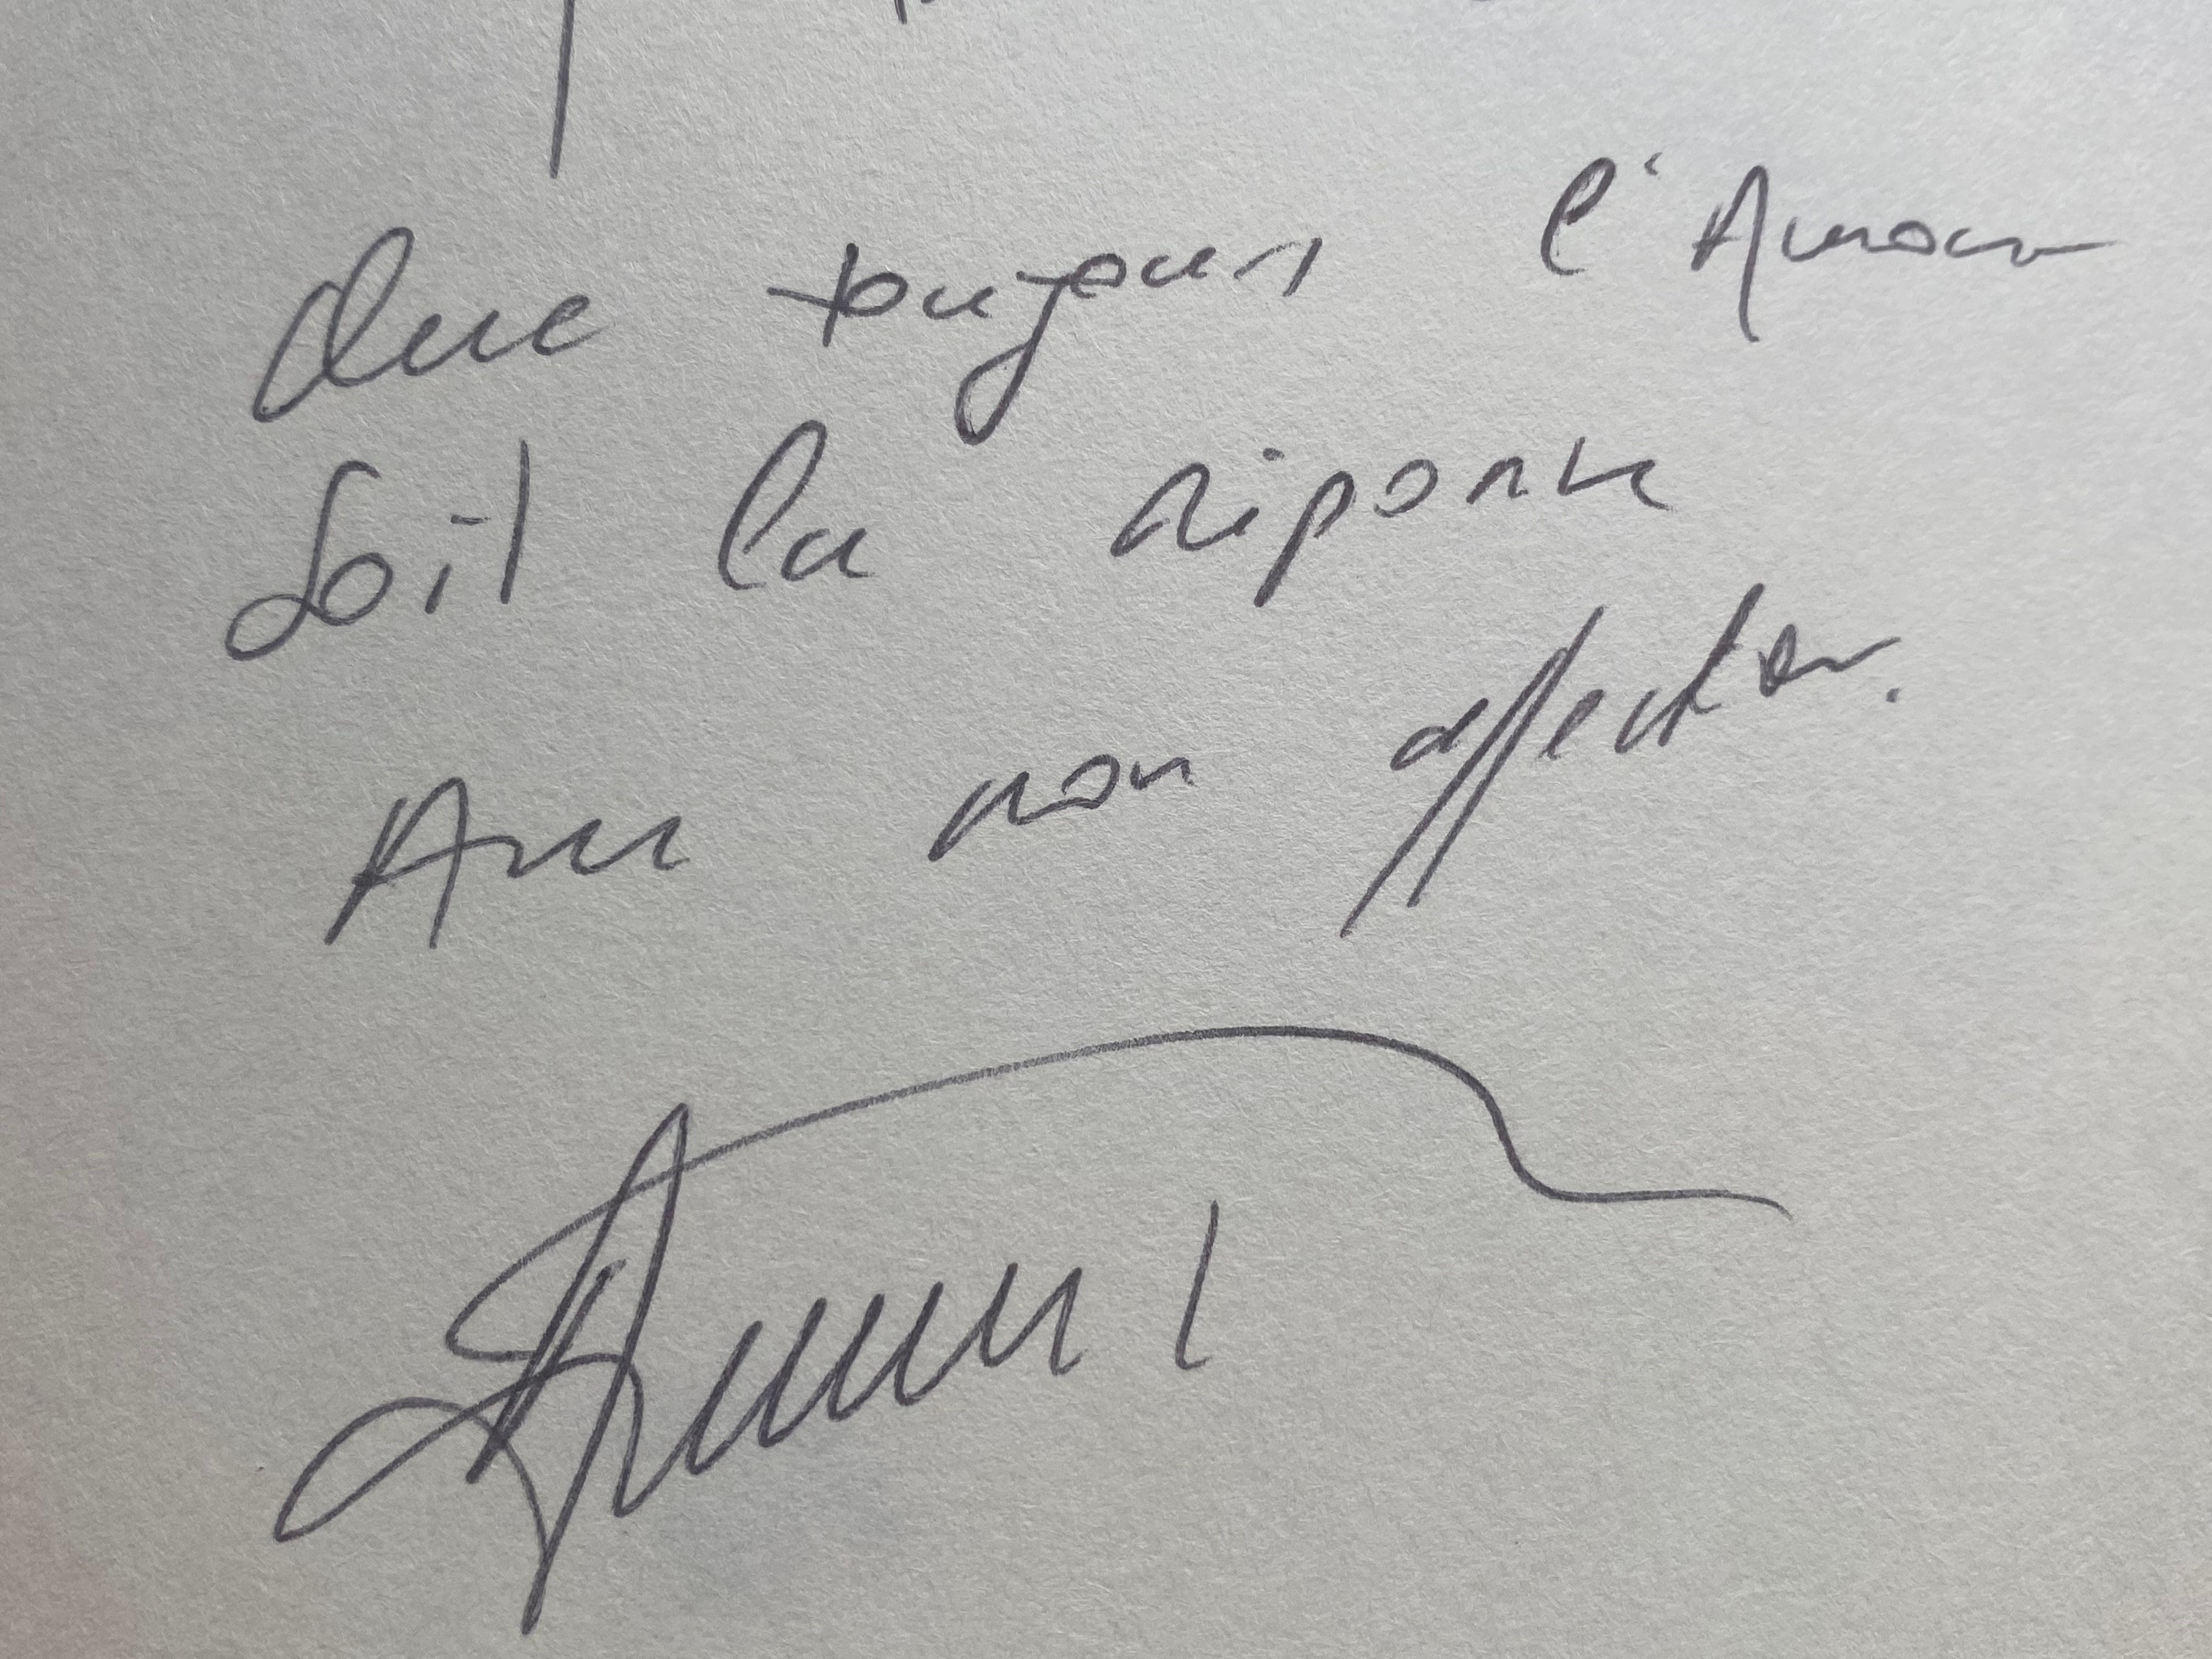 Que toujours l'Amour
soit la réponse
Avec mon affection.